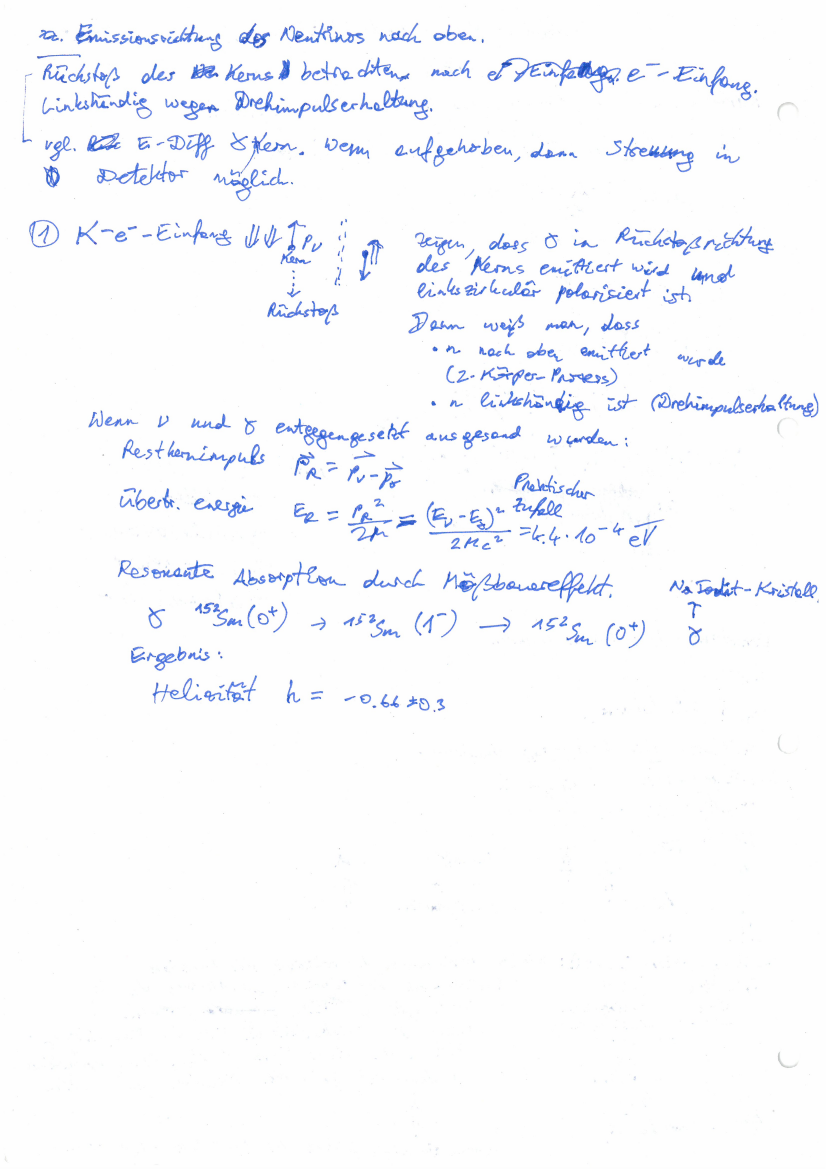 zz. Emissionsrichtung des Neutrinos nach oben.
Rückstoß des Kerns betrachten nach e⁻-Einfang.
Linkshändig wegen Drehimpulserhaltung.
vgl. E-Diff γ Kern. Wenn aufgehoben, dann Streuung in
Detektor möglich.
① K-e⁻-Einfang ⇓⇓ ↑ p_ν
Kern
Rückstoß
zeigen, dass γ in Rückstoßrichtung
des Kerns emittiert wird und
linkszirkulär polarisiert ist.
Dann weiß man, dass
• n nach oben emittiert wurde
(2-Körper-Prozess)
• n linkshändig ist (Drehimpulserhaltung)
Wenn ν und γ entgegengesetzt ausgesand wurden:
Restkernimpuls p⃗_R = p⃗_ν - p⃗_γ
Praktischer
Zufall
übertr. energie E_R = p_R²/2M = (E_ν - E_γ)²/2Mc² = 4.4 · 10⁻⁴ eV
Resonante Absorption durch Mößbauereffekt.
Na Jodit-Kristall
↑
γ
γ ¹⁵²Sm(0⁺) → ¹⁵²Sm(1⁻) → ¹⁵²Sm(0⁺)
Ergebnis:
Helizität h = -0.66 ± 0.3